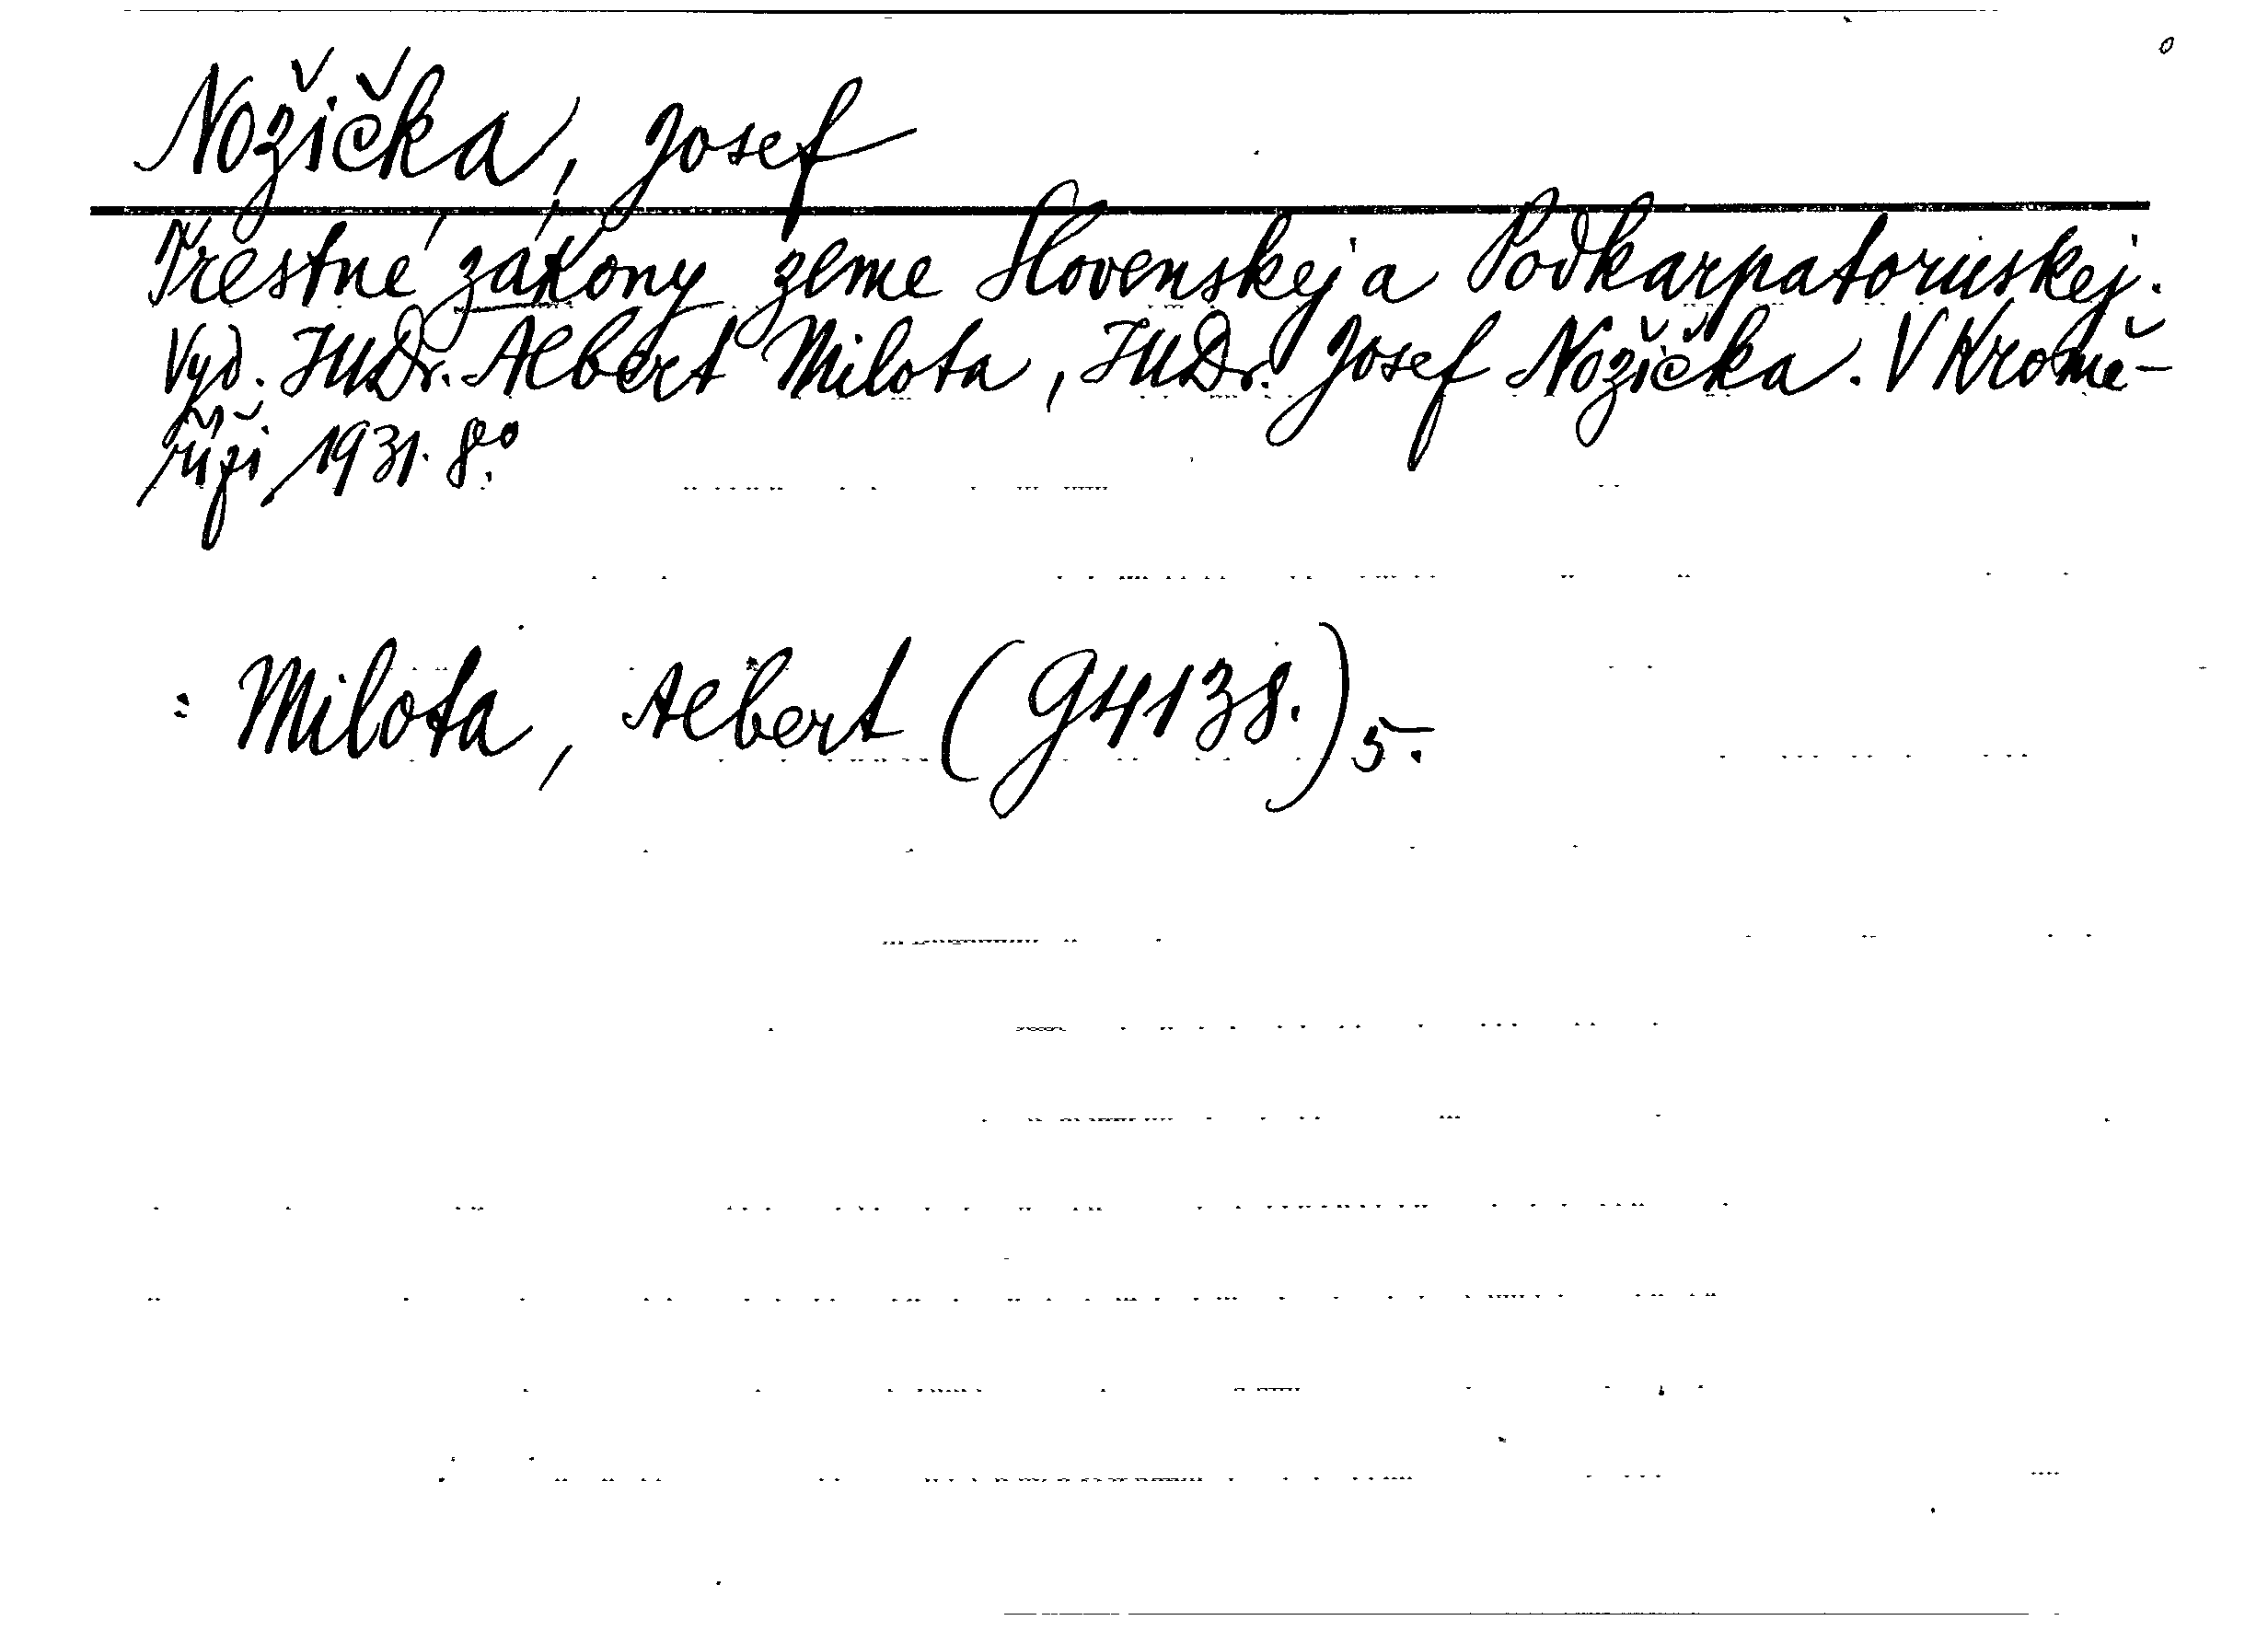 Nožička, Josef
Trestné zákony zeme Slovenskej a Podkarpatoruskej.
Vyd. JUDr. Albert Milota, JUDr. Josef Nožička. V Kromě-
říži 1931. 8°.
= Milota, Albert (G4138.) 5.